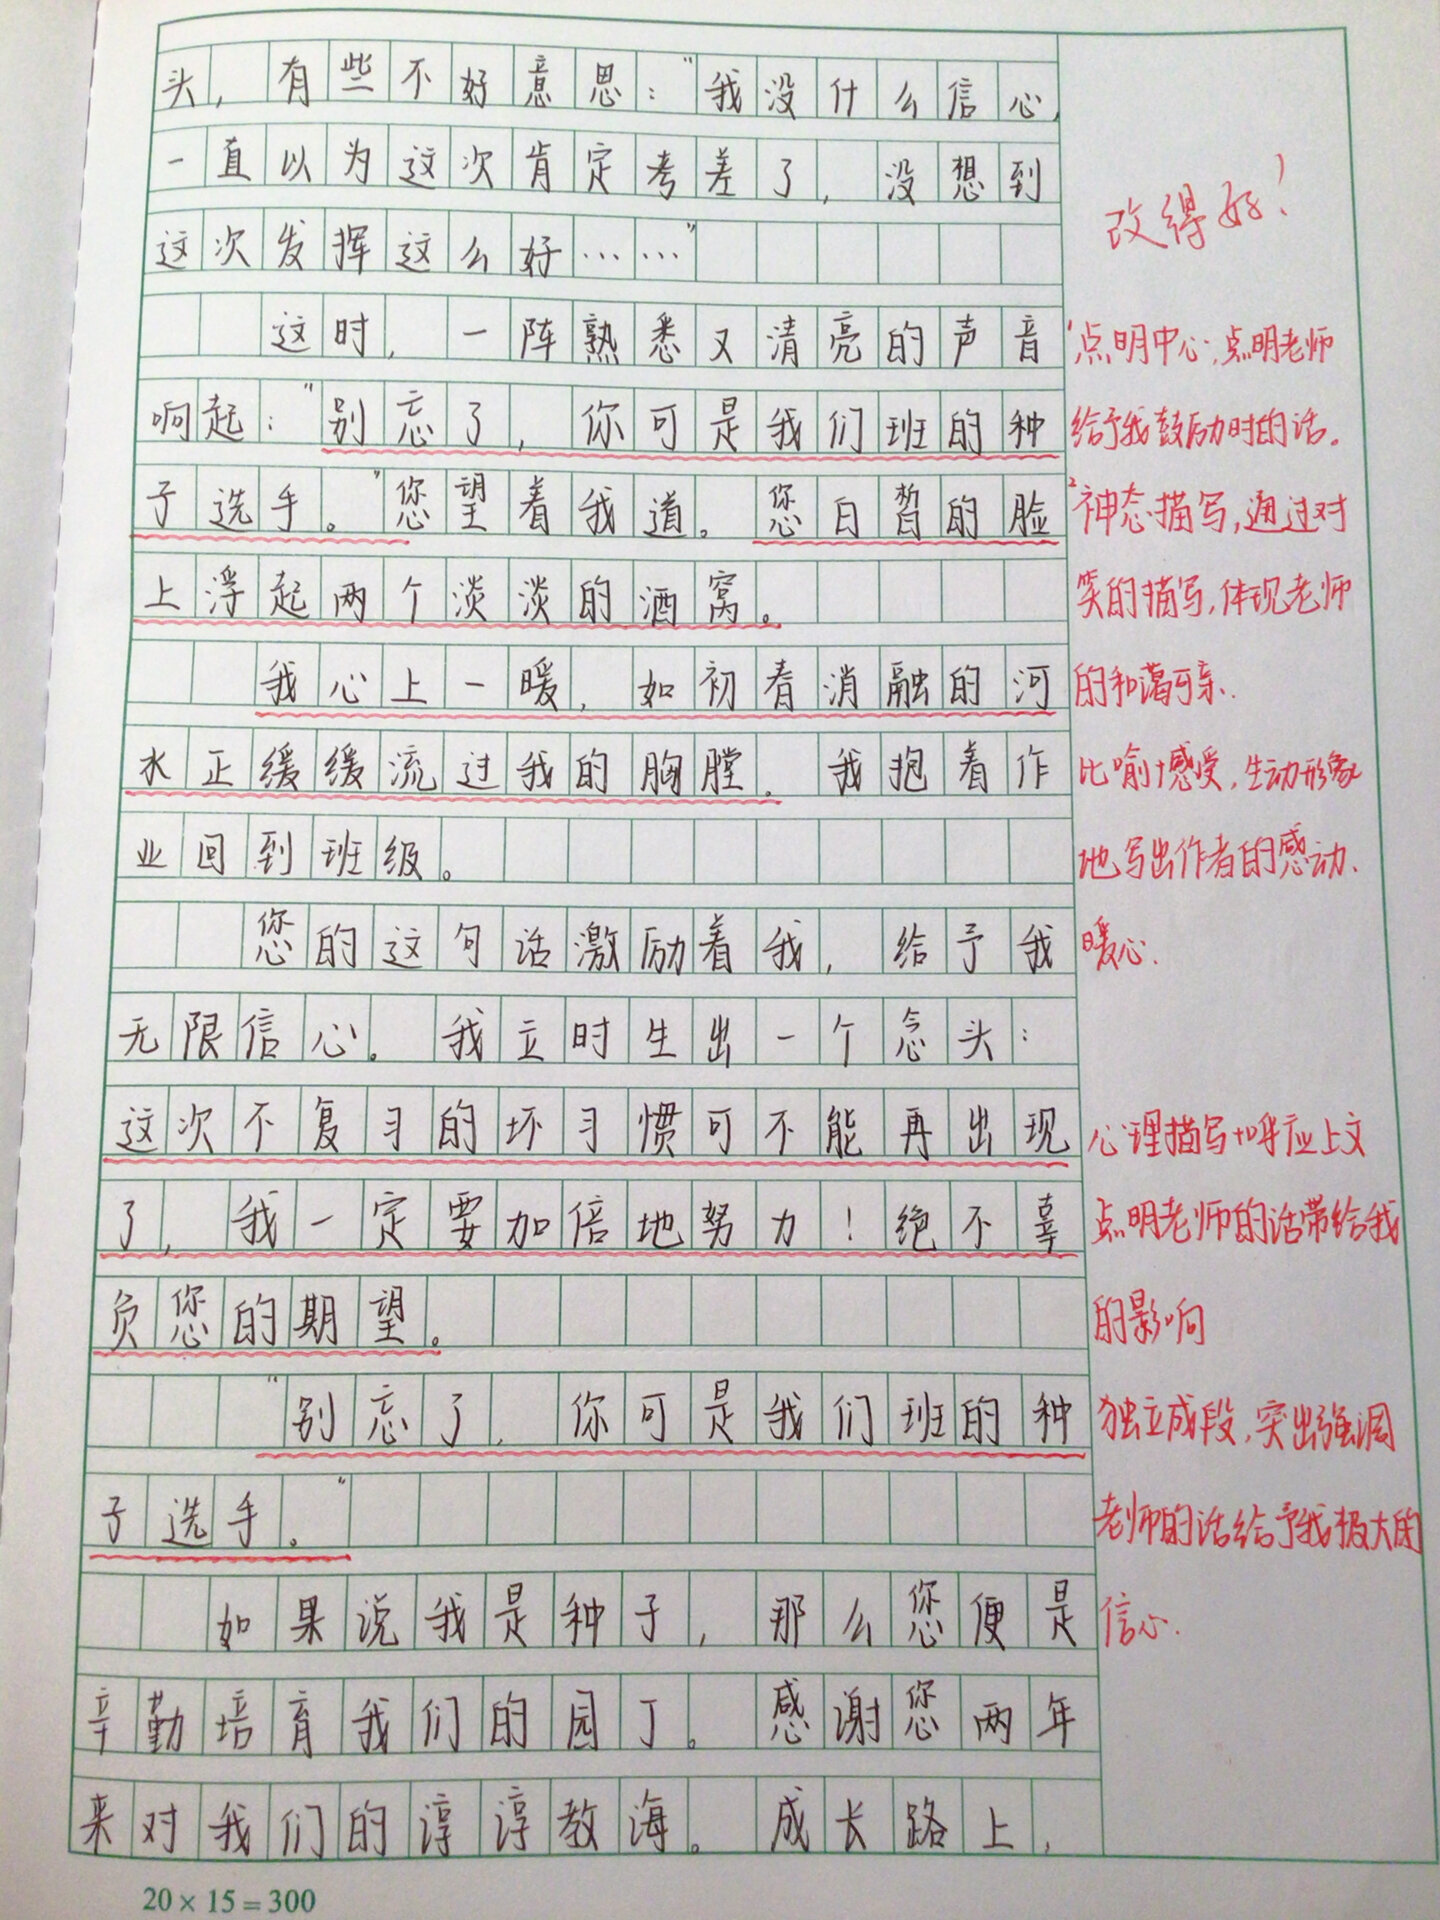 头，有些不好意思：“我没什么信心，
一直以为这次肯定考差了，没想到
这次发挥这么好……”
改得好！
这时，一阵熟悉又清亮的声音
响起：“别忘了，你可是我们班的种
子选手。”您望着我道。您白皙的脸
上浮起两个淡淡的酒窝。
我心上一暖，如初春消融的河
水正缓缓流过我的胸膛。我抱着作
业回到班级。
您的这句话激励着我，给予我
无限信心。我立时生出一个念头：
这次不复习的坏习惯可不能再出现
了，我一定要加倍地努力！绝不辜
负您的期望。
“别忘了，你可是我们班的种
子选手。”
如果说我是种子，那么您便是
辛勤培育我们的园丁。感谢您两年
来对我们的谆谆教海。成长路上，
1点明中心；点明老师
给予我鼓励时的话。
2神态描写，通过对
笑的描写，体现老师
的和蔼可亲.
比喻+感受，生动形象
地写出作者的感动.
暖心.
心理描写+呼应上文
点明老师的话带给我
的影响
独立成段，突出强调
老师的话给予我极大的
信心.
20×15=300